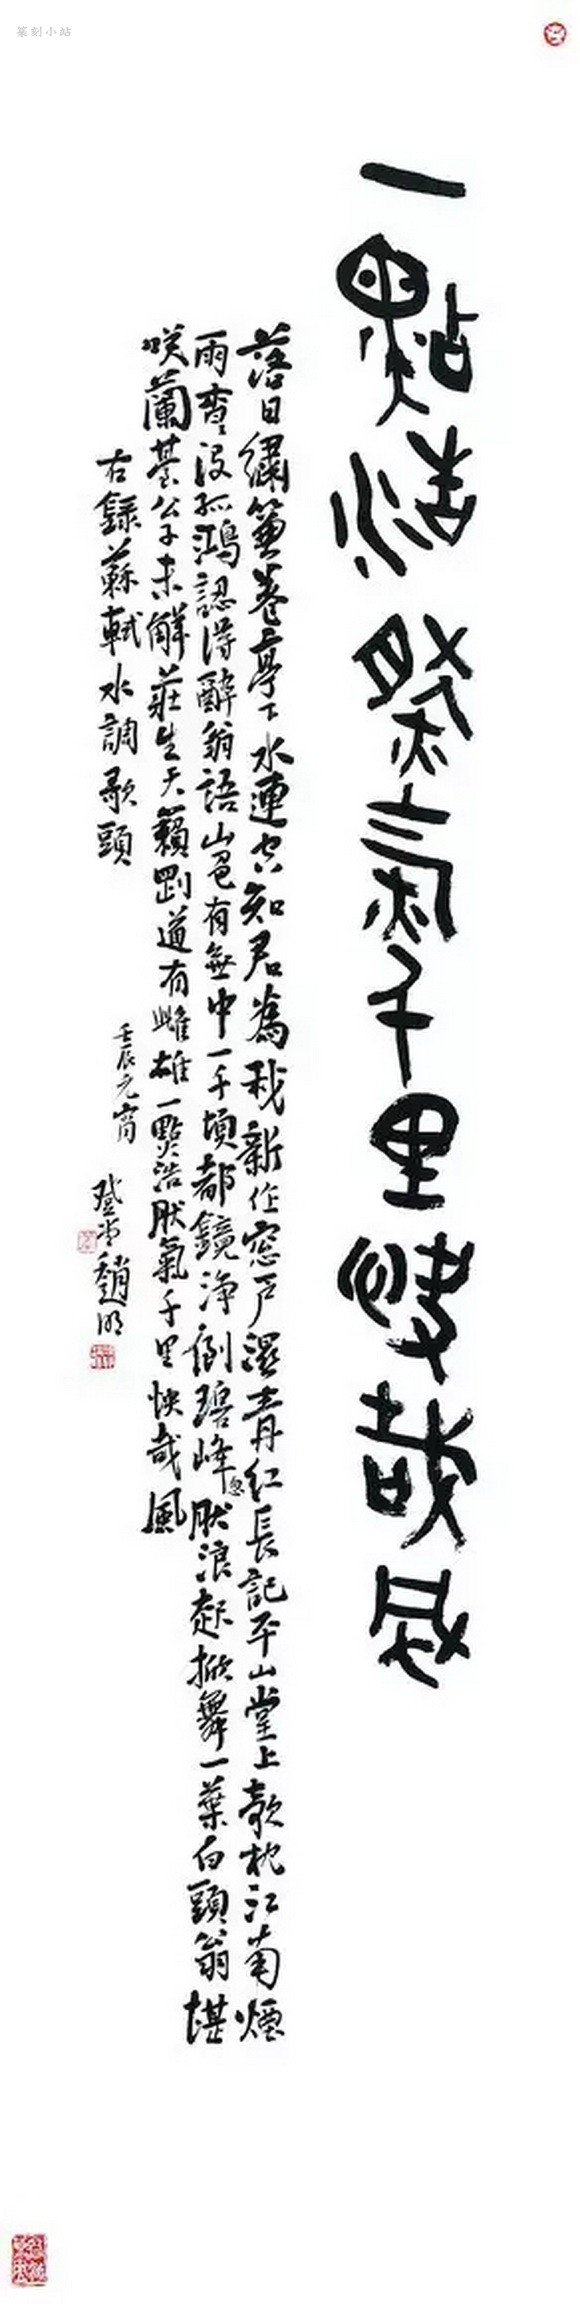 一點浩然氣千里快哉風
落日繡簾卷亭下水連空知君為我新作窓戶濕青紅長記平山堂上欹枕江南煙
雨杳〻沒孤鴻認得醉翁語山色有無中一千頃都鏡淨倒碧峰忽然浪起掀舞一葉白頭翁堪
咲蘭臺公子未解莊生天籟剛道有雌雄一點浩然氣千里快哉風
右錄蘇軾水調歌頭
壬辰元宵 趙明
篆刻小站